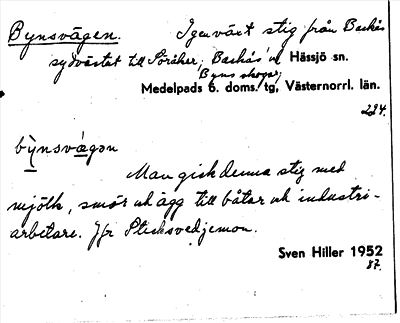 Bynsvägen. Igenväxt stig från Backås
sydvästut till Söråker, Backås' ok Hässjö sn.
Byns skogar;
Medelpads 6. doms. tg, Västernorrl. län.
224.
bỳnsvægən
Man gick denna stig med
mjölk, smör ok ägg till båtar ok industri-
arbetare. Jfr Sticksvedjemon.
Sven Hiller 1952
87.